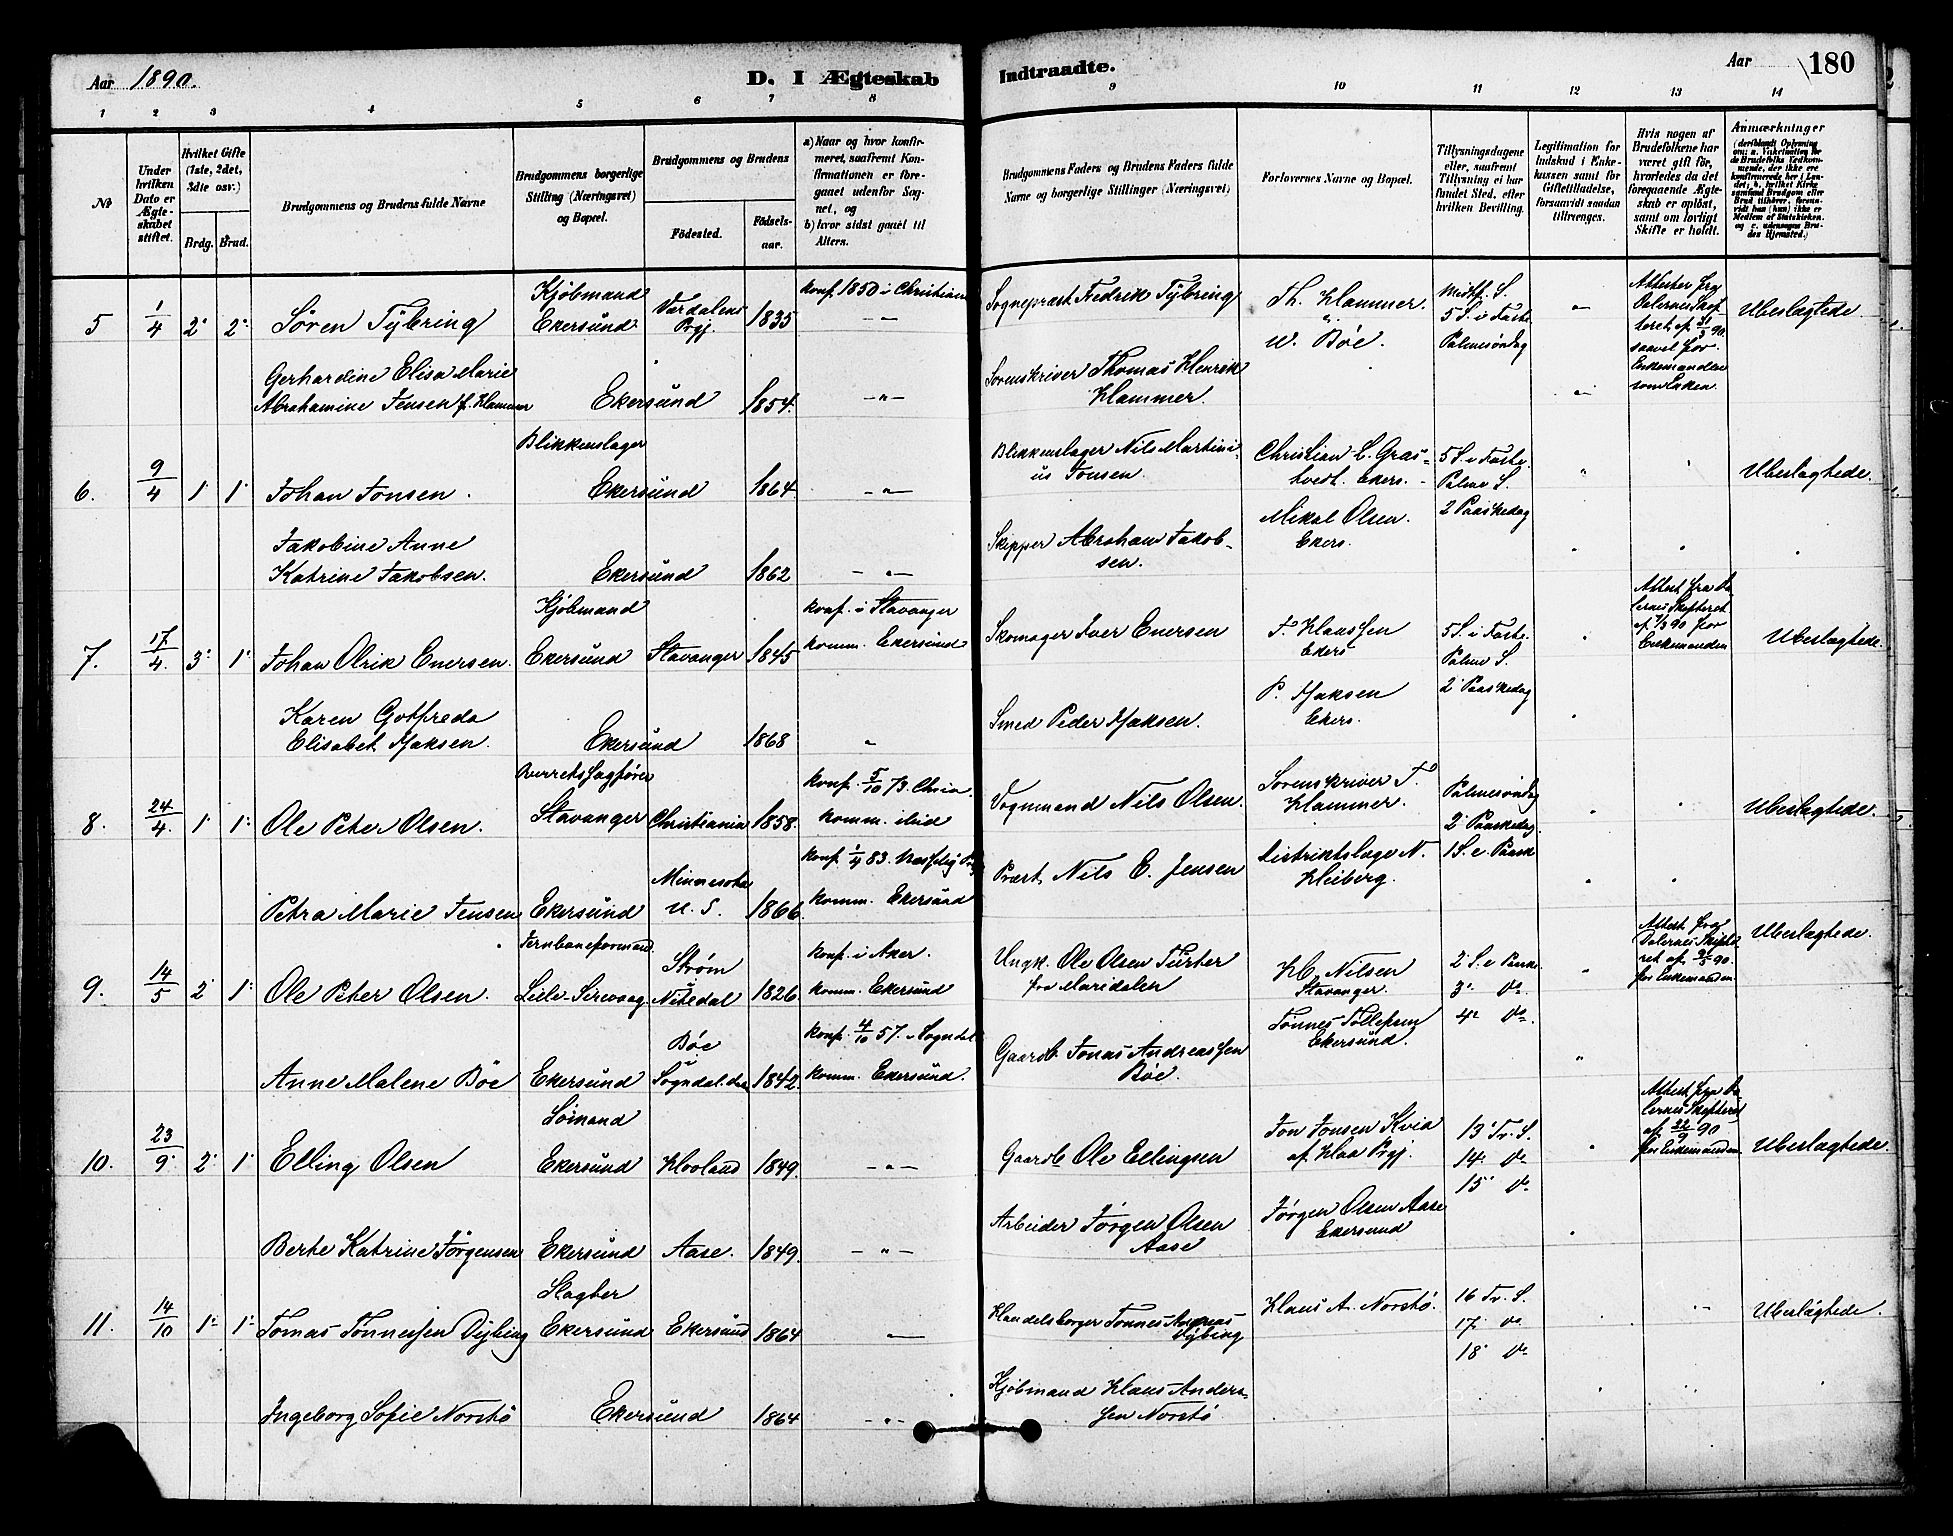 Aar 1890.
D. I Ægteskab Indtraadte.
Aar 180
1 2 3 4 5 6 7 8 9 10 11 12 13 14
No
Under hvilken Dato er Ægteskabet stiftet.
Hvilket Gifte (1ste, 2det, 3die osv.)
Brdg. Brud.
Brudgommens og Brudens fulde Navne
Brudgommens borgerlige Stilling (Næringsvei) og Bopæl.
Brudgommens og Brudens
Födested.
Födselsaar.
a) Naar og hvor konfirmeret, saafremt Konfirmationen er foregaaet udenfor Sognet, og
b) hvor sidst gaaet til Alters.
Brudgommens Faders og Brudens Faders fulde Navne og borgerlige Stillinger (Næringsvei).
Forlovernes Navne og Bopæl.
Tillysningsdagene eller, saafremt Tillysning ei har fundet Sted, efter hvilken Bevilling.
Legitimation for Indskud i Enkekassen samt for Giftetilladelse, forsaavidt saadan tiltrænges.
Hvis nogen af Brudefolkene har været gift før, hvorledes da det foregaaende Ægteskab er oplöst, samt om lovligt Skifte er holdt.
Anmærkninger
5 1/4 2' 2' Søren Tybring Kjöbmand Ekersund Værdalens Prgj. 1835 konf. 1850 i Christiania Sognepræst Fredrik Tybring Th. Hammer. Midtf. S. 5 S. i Faste. Palmesöndag Ubeslægtede
W. Böe.
Gerhardine Elisa Marie Abrahamine Jensen f. Hammer Ekersund 1854. Sorenskriver Thomas Henrik Hammer.
6. 9/4 1' 1' Johan Jonsen. Blikkenslager Ekersund 1864 Blikkenslager Nils Martinius Jonsen. Christian L. Grastvedt. Ekers. 5 S. i Faste. Palme S. 2 Paaskedag Ubeslægtede.
Jakobine Anne Katrine Jakobsen. Ekersund 1862 Skipper Abraham Jakobsen. Mikal Olsen. Ekers.
7. 17/4. 3' 1' Johan Olrik Enersen. Kjöbmand Ekersund Stavanger 1845 konf. i Stavanger komm. Ekersund Skomager Iver Enersen Ekers 5 S. i Faste. Palme S. 2 Paaskedag Ubeslægtede.
Karen Gotfreda Elisabet Maksen. Ekersund 1868 Smed Peder Maksen. P. Maksen Ekers.
8. 24/4. 1' 1' Ole Peter Olsen. Overretssagförer Stavanger Christiania 1858. konf. 5/10 73. Chria. komm. ibid Vognmand Nils Olsen. Sorenskriver T. Hammer. Palmesöndag 2' Paaskedag. 1 S. e. Paask Ubeslægtede.
Petra Marie Jensen Ekersund Minnesota U. S. 1866. konf. 1/4 83. komm. Ekersund Præst Nils E. Jensen Distriktslæge N. Heiberg.
9. 14/5 2' 1' Ole Peter Olsen. Jernbaneformand. Leile-Sirevaag. Strøm Nitedal 1826. konf. i Aker. komm. Ekersund Ungk. Ole Olsen Turter fra Maridalen Nilsen Stavanger. 2' S. e Paaske. 3' do 4' do. Ubeslægtede.
Anne Malene Böe Ekersund Böe Sogndal 1842. konf. 4/10 57. i Sogndal komm. Ekersund. Gaardb. Jonas Andreassen Böe. Tønnes Tollefsen Ekersund.
10. 23/9. 2' 1' Elling Olsen Sömand Ekersund Hooland 1849. Gaardb. Ole Ellingsen Jon Jonsen Kvia af Haa Prgj. 13' Tr. S. 14' do 15' do Ubeslægtede.
Berte Katrine Jørgensen Ekersund Aase. 1849. Arbeider Jørgen Olsen Aase Jørgen Olsen Aase Ekersund
11. 14/10 1' 1' Tomas Tønnessen Dybing Slagter Ekersund Ekersund 1864 Handelsborger Tønnes Dybing Klaus A. Norstö. 16 Tr. S. 17' do 18' do Ubeslægtede.
Ingeborg Sofie Norstö Ekersund 1864 Kjöbmand Klaus Anderssen Norstö